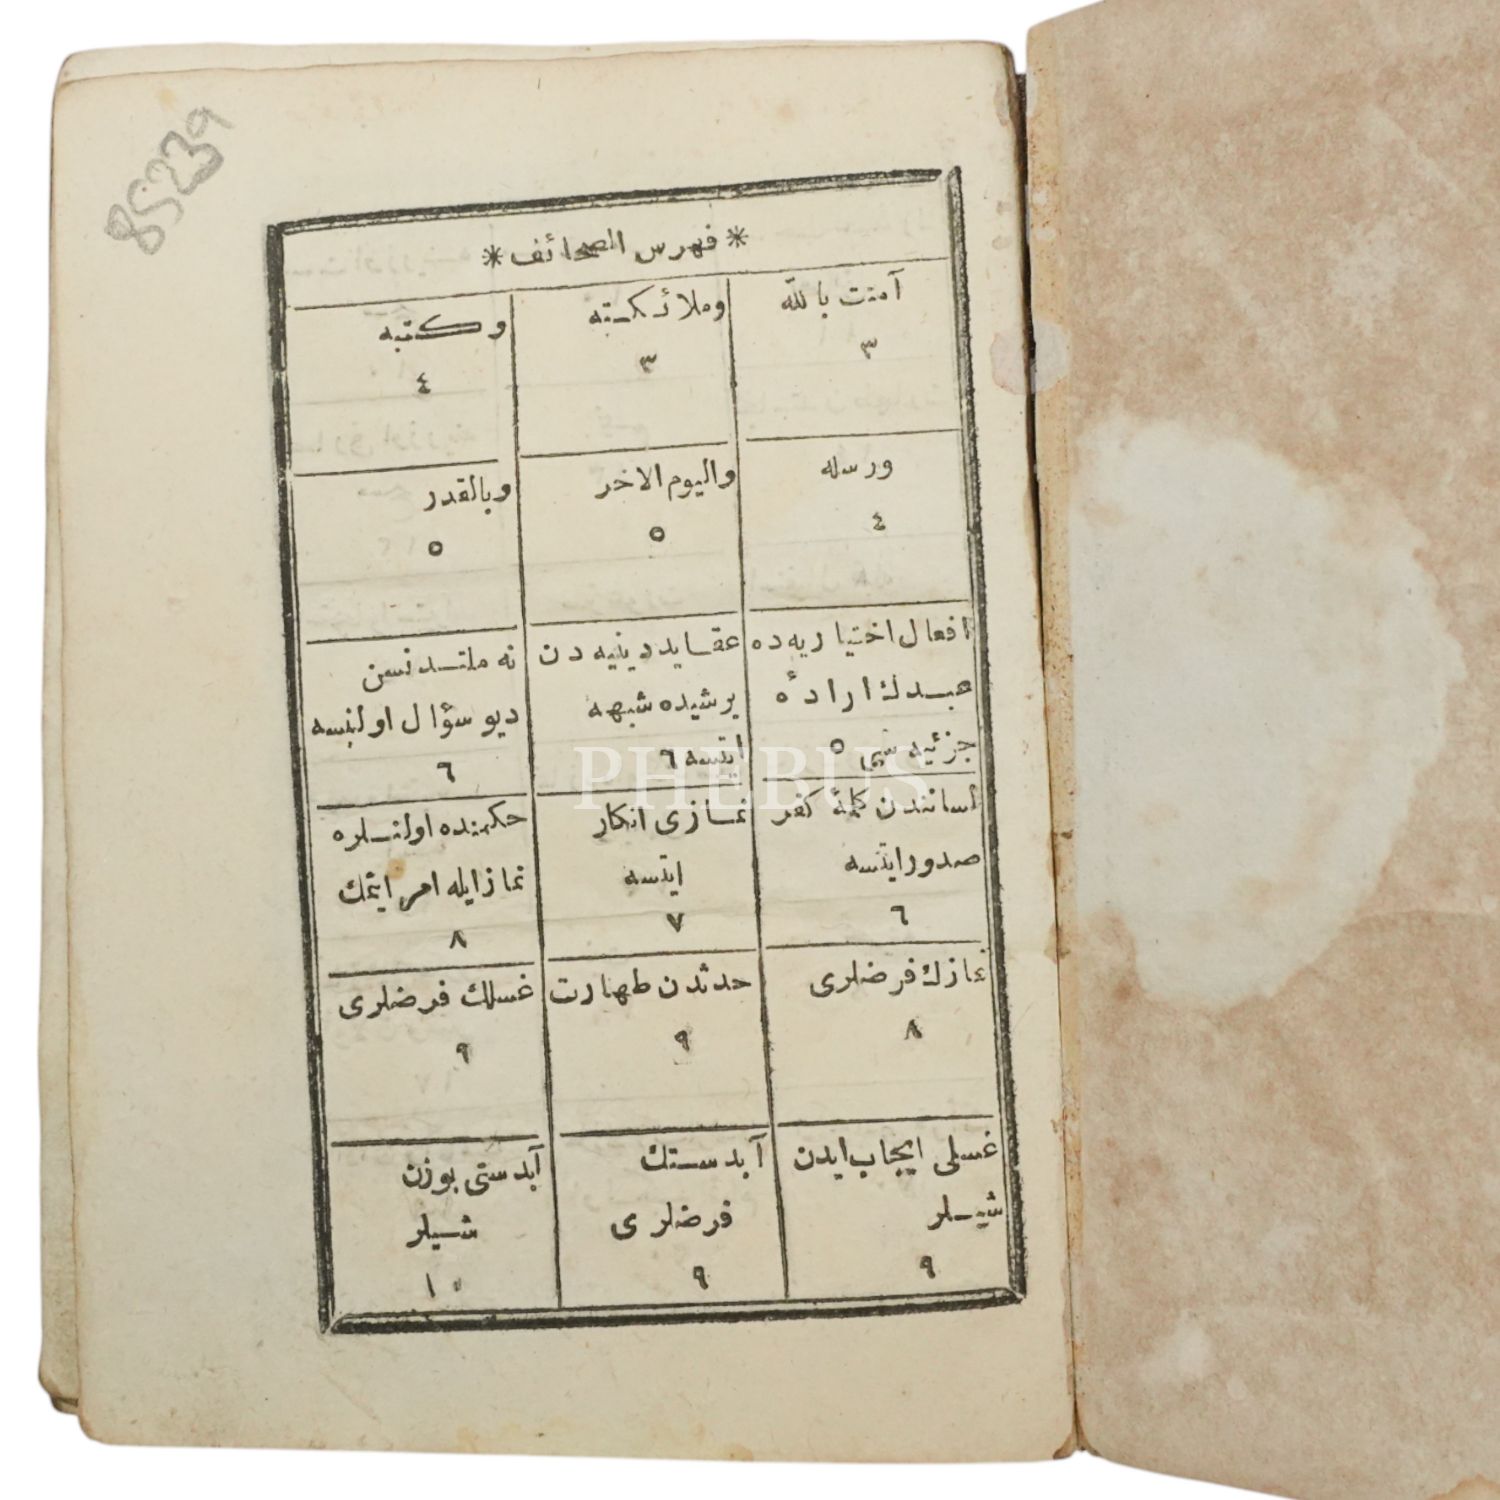 85239
* فهرس الصحائف *
آمنت بالله
٣
وملائكته
٣
وكتبه
٤
ورسله
٤
واليوم الاخر
٥
وبالقدر
٥
افعال اختياريه ده
عبدك ارادۀ
جزئيه سى ٥
عقايد دينيه دن
بر شيده شبهه
ايتسه ٦
نه ملتدنسن
ديو سؤال اولنسه
٦
لسانندن كلمۀ كفر
صدور ايتسه
٦
نمازى انكار
ايتسه
٧
حكمنده اولنلره
نماز ايله امر ايتمك
٨
نمازك فرضلرى
٨
حدثدن طهارت
٩
غسلك فرضلرى
٩
غسلى ايجاب ايدن
شيلر
٩
آبدستك
فرضلرى
٩
آبدستى بوزن
شيلر
١٠
PHEBUS